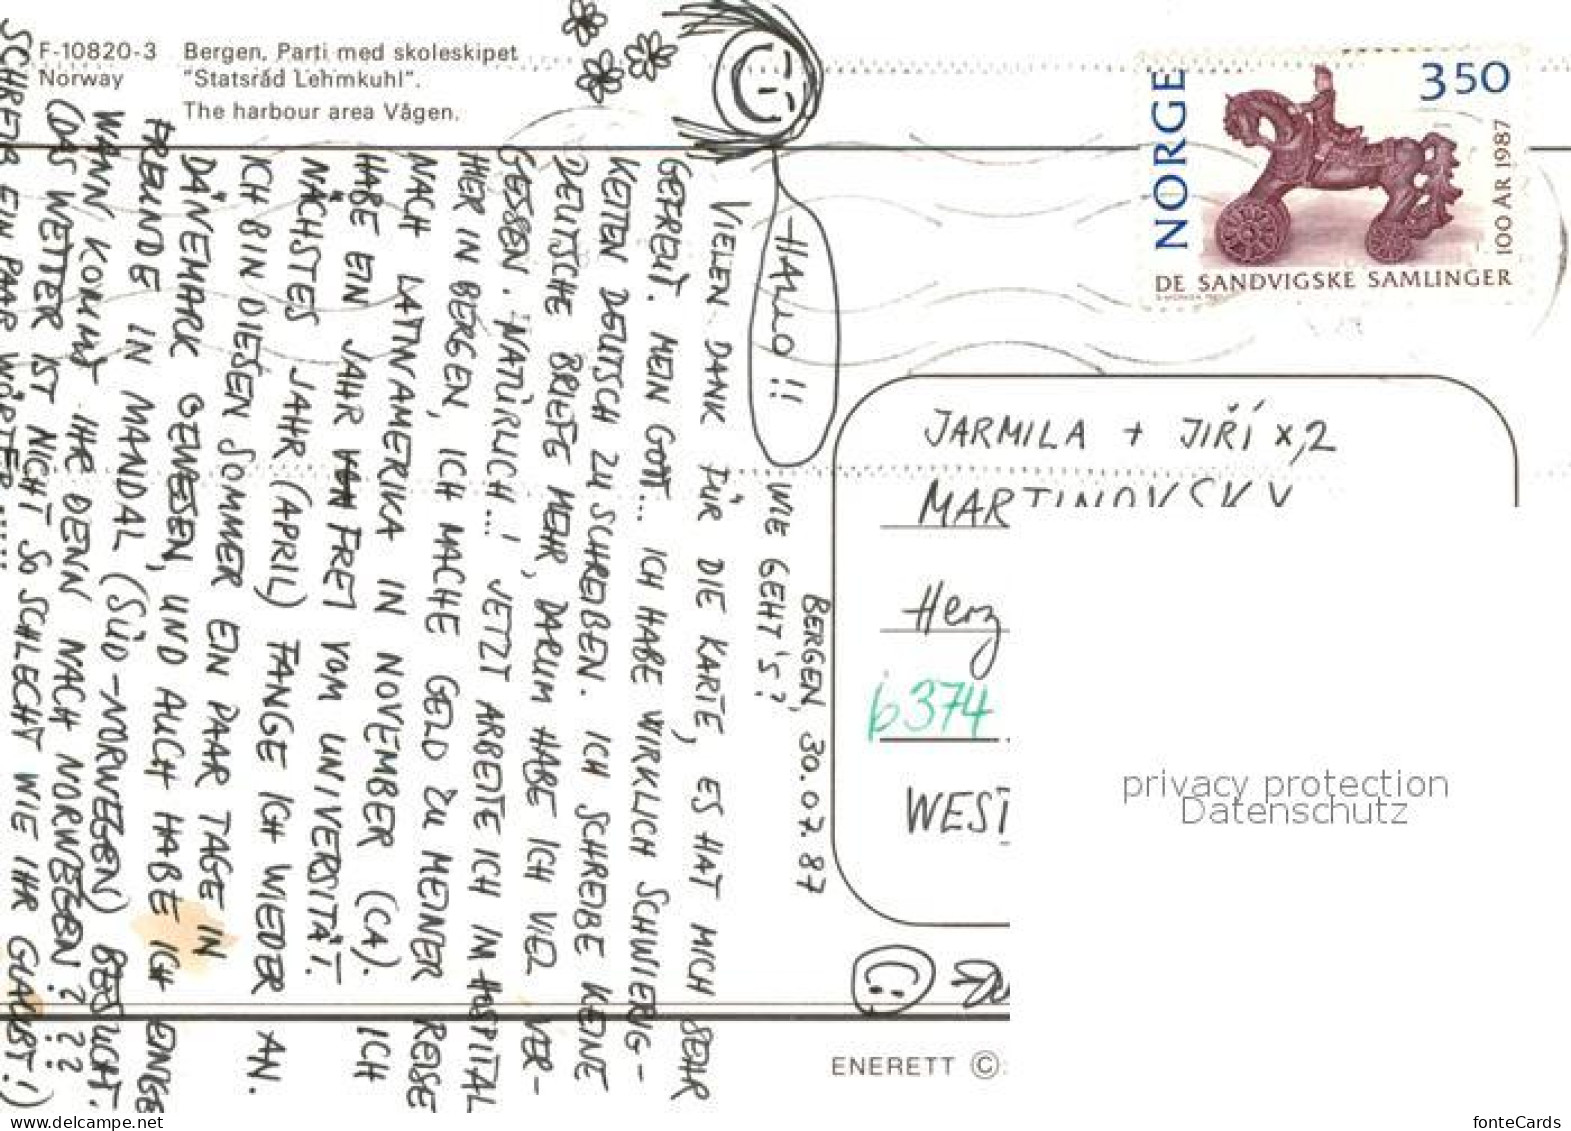 F-10820-3
Norway
Bergen. Parti med skoleskipet
"Statsråd Lehmkuhl".
The harbour area Vågen.
NORGE
350
100 ÅR 1987
DE SANDVIGSKE SAMLINGER
HALLO !!
BERGEN, 30.07.87
WIE GEHT'S?
VIELEN DANK FÜR DIE KARTE, ES HAT MICH SEHR
GEFREUT. MEIN GOTT... ICH HABE WIRKLICH SCHWIERIG-
KEITEN DEUTSCH ZU SCHREIBEN. ICH SCHREIBE KEINE
DEUTSCHE BRIEFE MEHR, DARUM HABE ICH VIEL VER-
GESSEN. NATÜRLICH...! JETZT ARBEITE ICH IM HOSPITAL
HIER IN BERGEN, ICH MACHE GELD ZU MEINER REISE
NACH LATINAMERIKA IN NOVEMBER (CA). ICH
HABE EIN JAHR FREI VOM UNIVERSITÄT.
NÄCHSTES JAHR (APRIL) FANGE ICH WIEDER AN.
ICH BIN DIESEN SOMMER EIN PAAR TAGE IN
DÄNEMARK GEWESEN, UND AUCH HABE ICH EINIGE
FREUNDE IN MANDAL (SÜD-NORWEGEN) BESUCHT.
WANN KOMMT IHR DENN NACH NORWEGEN???
(DAS WETTER IST NICHT SO SCHLECHT WIE IHR GLAUBT!)
SCHREIB EIN PAAR WÖRTER.....
JARMILA + JIŘÍ x,2
MARTINOVSKY
Herz
6374
WEST
privacy protection
Datenschutz
ENERETT ©
www.delcampe.net
fonteCards